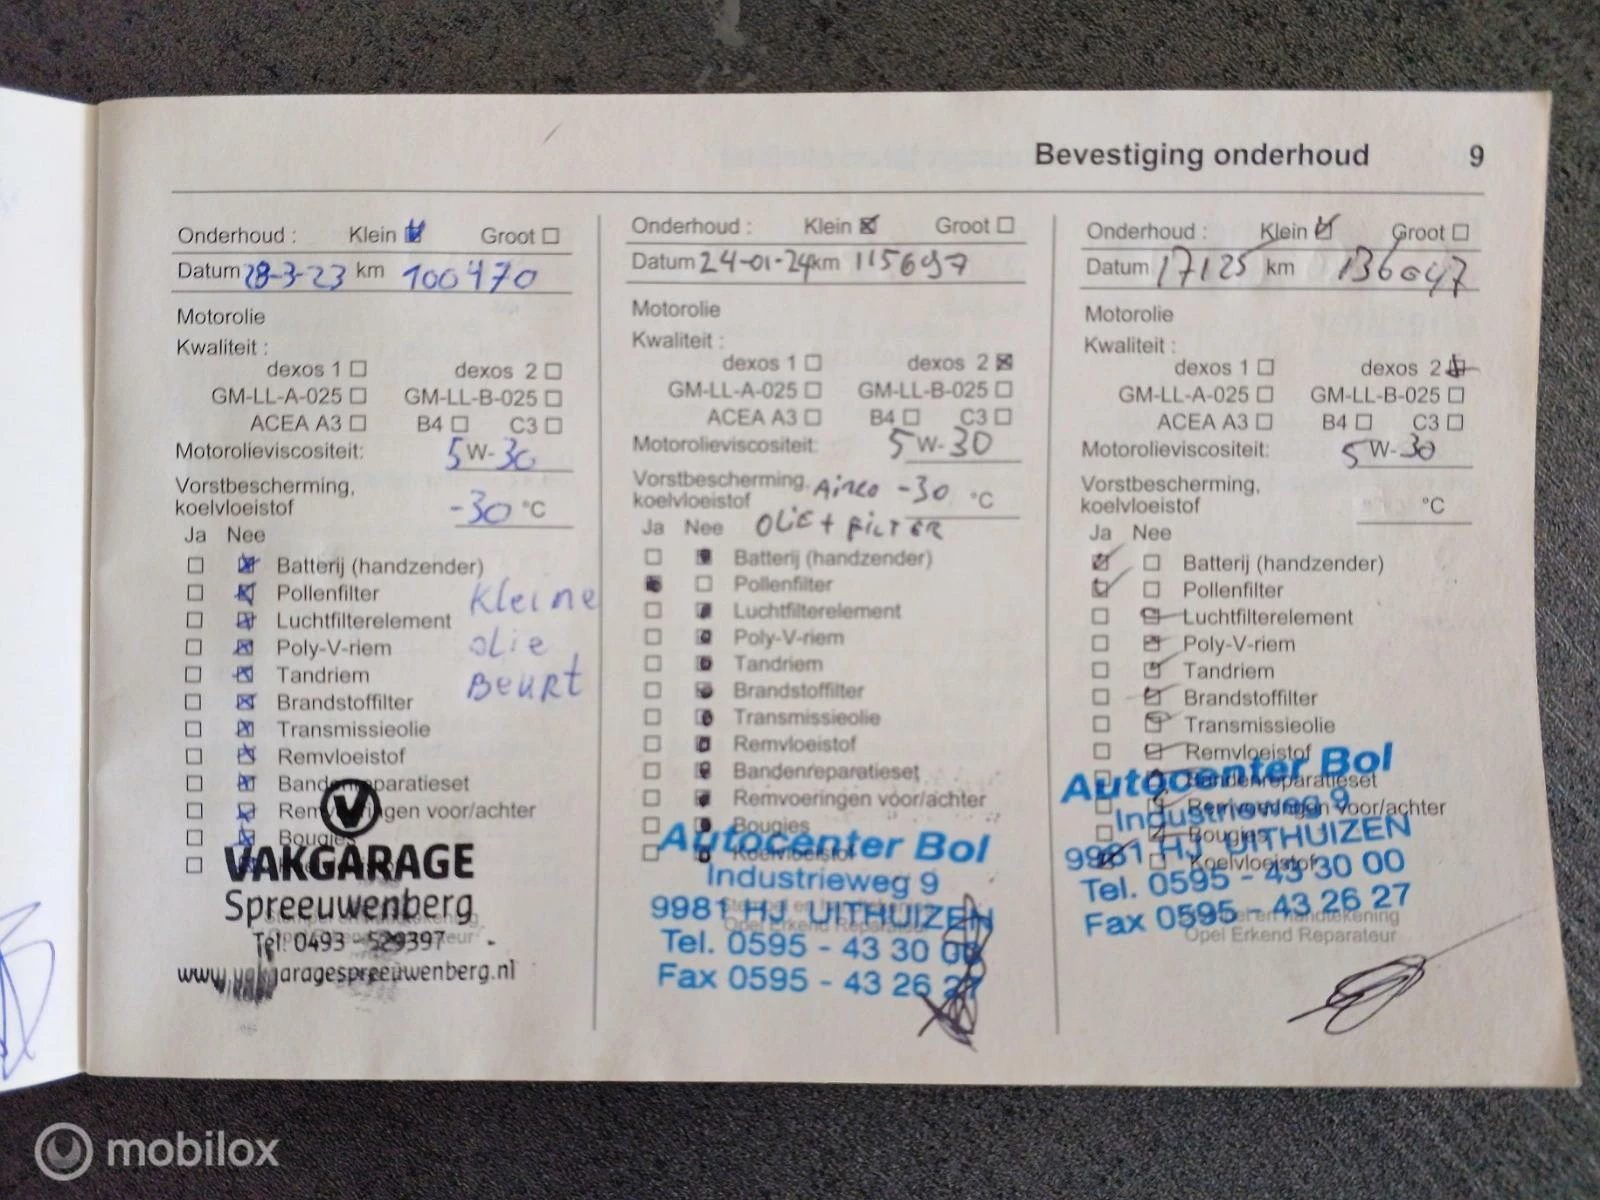 Bevestiging onderhoud 9
Onderhoud : Klein Groot
Datum 28-3-23 km 100470
Motorolie
Kwaliteit :
dexos 1 dexos 2
GM-LL-A-025 GM-LL-B-025
ACEA A3 B4 C3
Motorolieviscositeit: 5W-30
Vorstbescherming,
koelvloeistof -30 °C
Ja Nee
Batterij (handzender)
Pollenfilter Kleine
Luchtfilterelement
Poly-V-riem olie
Tandriem
Brandstoffilter Beurt
Transmissieolie
Remvloeistof
Bandenreparatieset
Remvoeringen voor/achter
Bougies
VAKGARAGE
Spreeuwenberg
Tel. 0493 - 529397
www.vakgaragespreeuwenberg.nl
Onderhoud : Klein Groot
Datum 24-01-24 km 115697
Motorolie
Kwaliteit :
dexos 1 dexos 2
GM-LL-A-025 GM-LL-B-025
ACEA A3 B4 C3
Motorolieviscositeit: 5W-30
Vorstbescherming, Airco -30 °C
koelvloeistof
Ja Nee OLIE + FILTER
Batterij (handzender)
Pollenfilter
Luchtfilterelement
Poly-V-riem
Tandriem
Brandstoffilter
Transmissieolie
Remvloeistof
Bandenreparatieset
Remvoeringen voor/achter
Bougies
Koelvloeistof
Autocenter Bol
Industrieweg 9
9981 HJ UITHUIZEN
Stempel en handtekening
Opel Erkend Reparateur
Tel. 0595 - 43 30 00
Fax 0595 - 43 26 27
Onderhoud : Klein Groot
Datum 17125 km 136047
Motorolie
Kwaliteit :
dexos 1 dexos 2
GM-LL-A-025 GM-LL-B-025
ACEA A3 B4 C3
Motorolieviscositeit: 5W-30
Vorstbescherming,
koelvloeistof °C
Ja Nee
Batterij (handzender)
Pollenfilter
Luchtfilterelement
Poly-V-riem
Tandriem
Brandstoffilter
Transmissieolie
Remvloeistof
Bandenreparatieset
Remvoeringen voor/achter
Bougies
Koelvloeistof
Autocenter Bol
Industrieweg 9
9981 HJ UITHUIZEN
Tel. 0595 - 43 30 00
Fax 0595 - 43 26 27
Stempel en handtekening
Opel Erkend Reparateur
mobilox